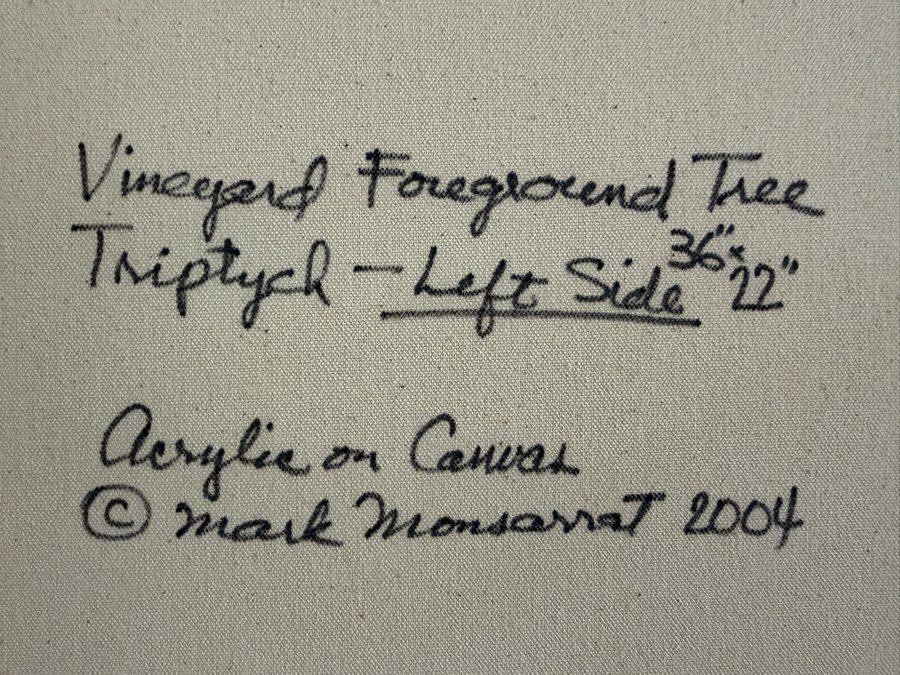 Vineyard Foreground Tree
Triptych – Left Side 36" x 22"
Acrylic on Canvas
© Mark Monsarrat 2004